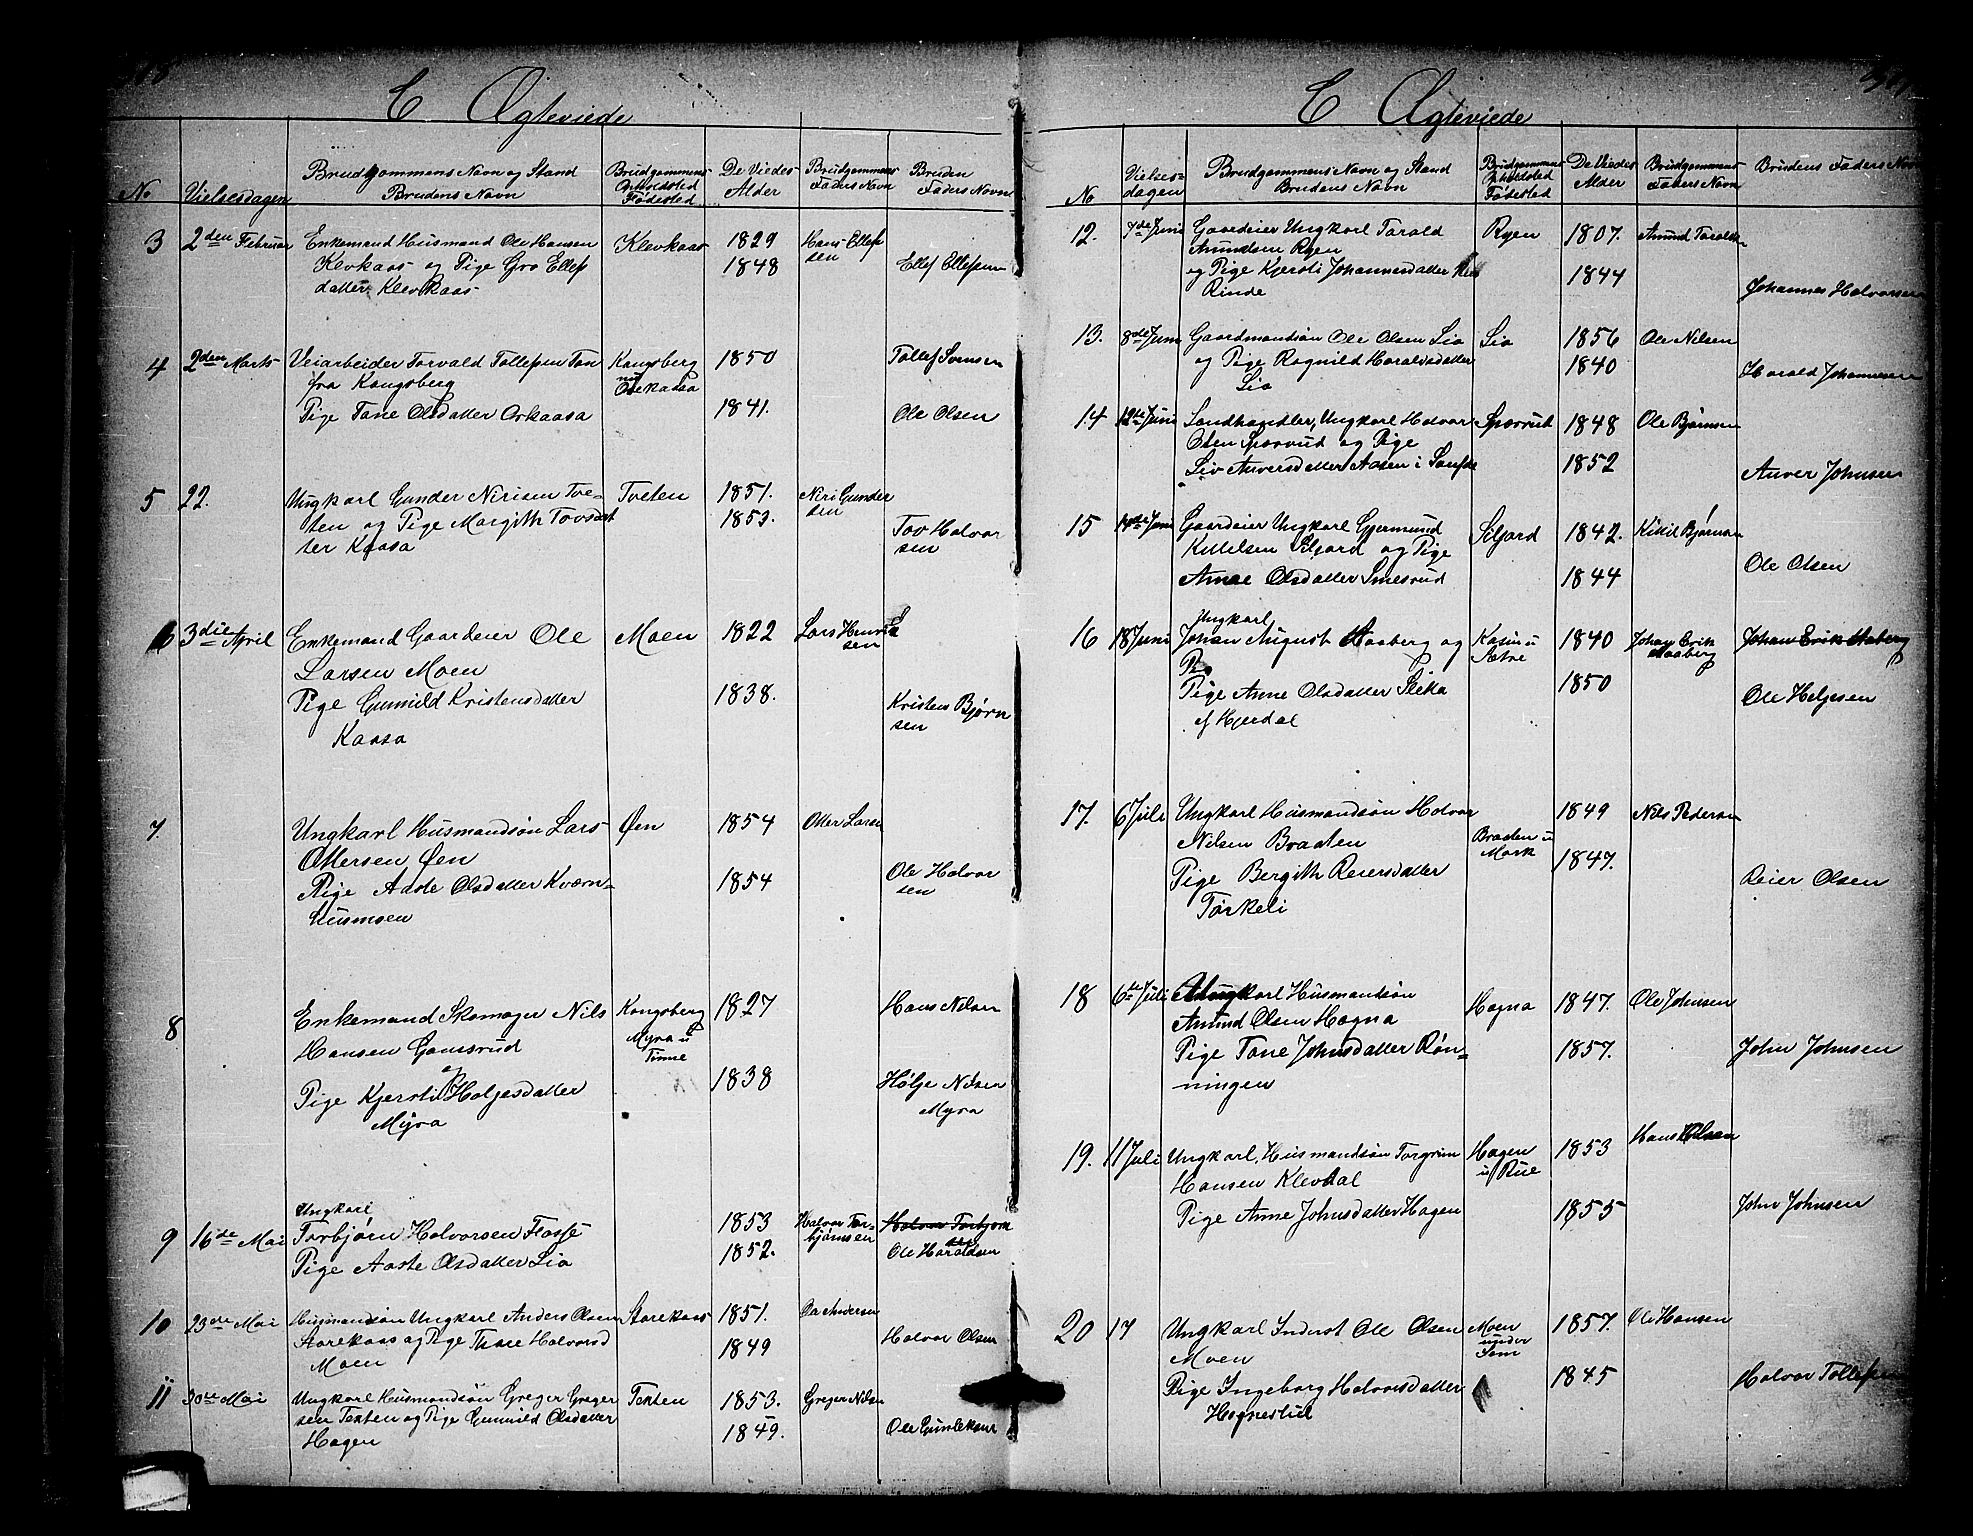 C Ægteviede
No
Vielsesdagen
Brudgommens Navn og Stand
Brudens Navn
Brudgommens
Fødested
De Viedes
Alder
Brudgommens
Faders Navn
Bruden
Faders Navn
3
2den Februar
Enkemand Husmand Ole Hansen
Klevkaas og Pige Gro Ellefs
datter Klevkaas
Klevkaas
1829
1848
Hans Ellef
sen
Ellef Ellefsen
4
2den Marts
Veiarbeider Torvald Tollefsen
fra Kongsberg
Pige Tane Olsdatter Orkaasa
Kongsberg
1850
1841.
Tollef Svensen
Ole Olsen
5
22.
Ungkarl Gunder Nirisen Tve-
ten og Pige Margith Tovsdat
ter Kaasa
Tveten
1851.
1853.
Niri Gunder
sen
Tov Halvor
sen
6
3die April
Enkemand Gaardeier Ole
Larsen Moen
Pige Gunnild Kristensdatter
Kaasa
Moen
1822
1838.
Lars Henrik
sen
Kristens Bjørn
sen
7
Ungkarl Husmandsøn Lars
Ottersen Øen
Pige Aaste Olsdatter Kværn-
husmoen
Øen
1854
1854
Otter Larsen
Ole Halvor
sen
8
Enkemand Skomager Nils
Hansen Gamsrud
Pige Kjersti Holjesdatter
Myra
Kongsberg
Myra u
Tinne
1827
1838
Hans Nilsen
Hølje Nilsen
Myra
9
16de Mai
Ungkarl
Torbjørn Halvorsen Flosse
Pige Aaste Olsdatter Lia
1853
1852.
Halvor Tor-
bjørnsen
Halvor Torbjørn
sen
Ole Haraldsen
10
23de Mai
Husmandsøn Ungkarl Anders Olsen
Storekaas og Pige Tone Halvorsd
Moen
Storekaas
1851.
1849
Ole Andersen
Halvor Olsen
11
30te Mai
Ungkarl Husmandsøn Greger Greger
sen Teksten og Pige Gunnild Olsdatter
Hagen
Teksten
1853.
1849.
Greger Nilsen
Ole Gunleksen
C Ægteviede
No
Vielses-
dagen
Brudgommens Navn og Stand
Brudens Navn
Brudgommens
Fødested
De Viedes
Alder
Brudgommens
Faders Navn
Brudens Faders Navn
12.
7de Juni
Gaardeier Ungkarl Tarald
Amundsen Ryen
og Pige Kjersti Johannesdatter
Rinde
Ryen
1807.
1844
Amund Taralds
Johannes Halvorsen
13.
8de Juni
Gaardmandsøn Ole Olsen Lia
og Pige Ragnild Haraldsdatter
Lia
Lia
1856
1840
Ole Nilsen
Harald Johannesen
14
12te Juni
Landhandler, Ungkarl Halvor
Olsen Spærrud og Pige
Liv Anversdatter Aasen i Sansde
Spærrud
1848
1852
Ole Bjørnsen
Anver Johnsen
15
14de Juni
Gaardeier Ungkarl Gjermund
Kittelsen Siljord og Pige
Anne Olsdatter Smesrud
Siljord
1842.
1844
Kittil Bjørnsen
Ole Olsen
16
18 Juni
Ungkarl
Johan August Aaberg og
Pige Anne Olsdatter Sleka
af Hjerdal
Kasin u
Sætre
1840
1850
Johan Erik
Aaberg
Johan Erik Aaberg
Ole Heljesen
17.
6 Juli
Ungkarl Husmandsøn Halvor
Nilsen Braaten
Pige Bergith Reiersdatter
Torkeli
Braaten u
Mork
1849
1847.
Nils Pedersen
Reier Olsen
18
6te Juli
Ungkarl Husmandsøn
Amund Olsen Hagna
Pige Tone Johnsdatter Røn-
ningen
Hagna
1847.
1857.
Ole Johnsen
John Johnsen
19.
11 Juli
Ungkarl, Husmandsøn Torgrim
Hansen Klevdal
Pige Anne Johnsdatter Hagen
Hagen
u Rue
1853
1855
Hans Olsen
John Johnsen
20
17
Ungkarl Inderst Ole Olsen
Moen
Pige Ingeborg Halvorsdatter
Hagnestul
Moen
under
Sem
1857.
1845
Ole Hansen
Halvor Tollefsen